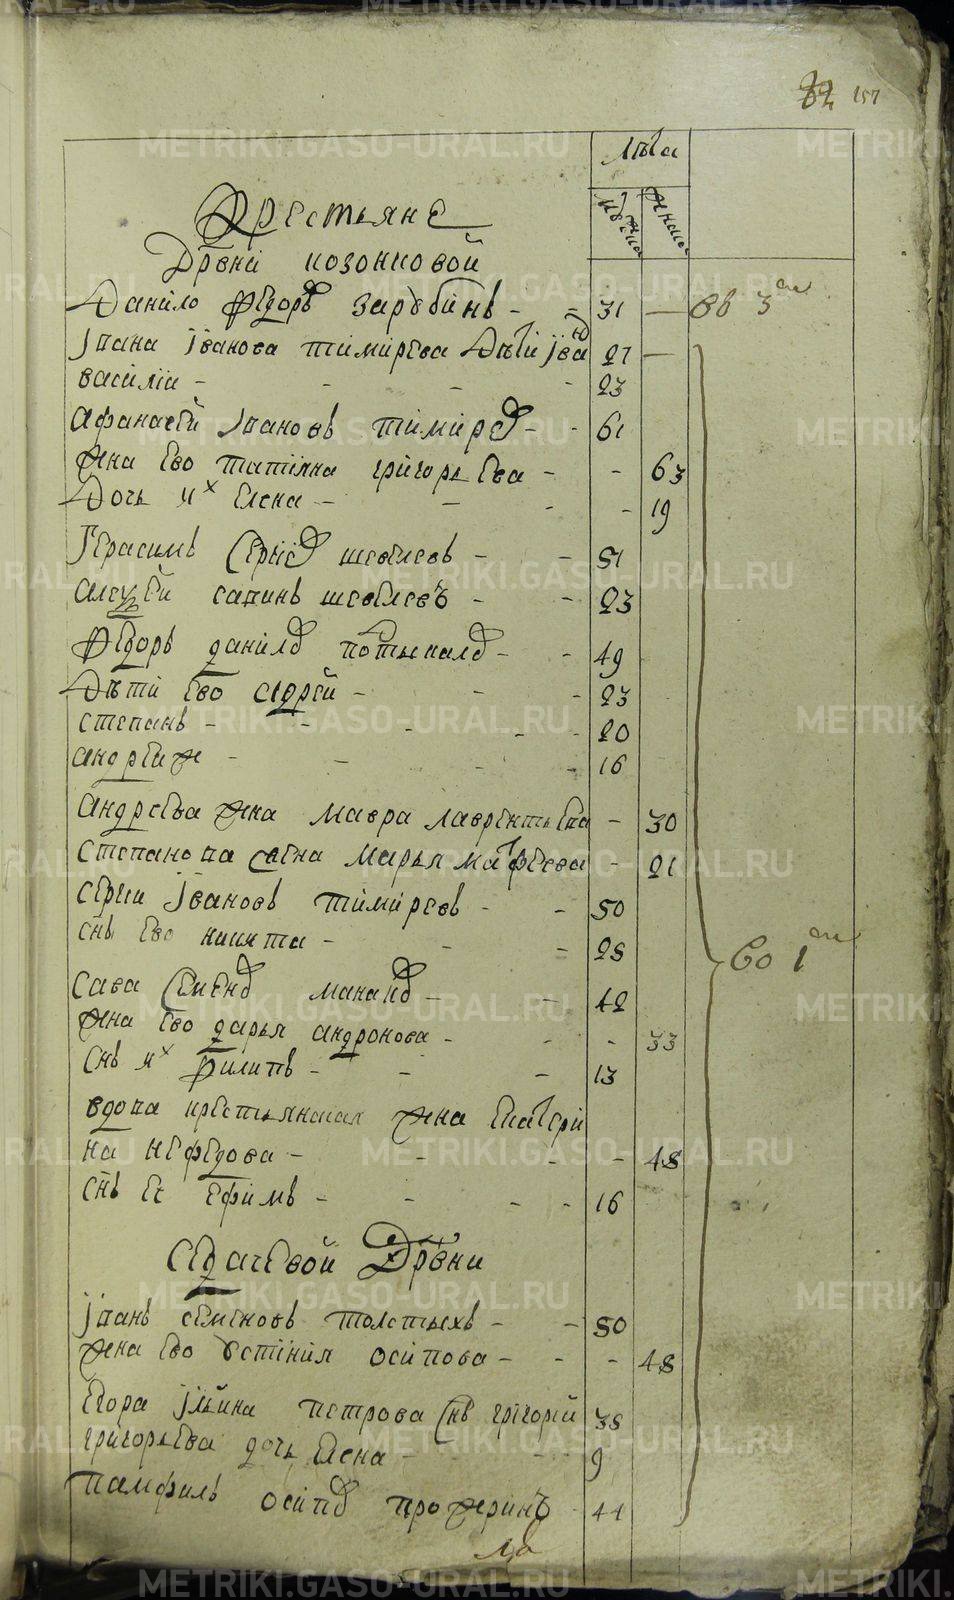 157
лѣта
мужеска
женска
Крестьяне
Дрвни козонковой
Данило Федоръ зарубинъ - - 31 — Въ 3 ей
Івана Іванова тимирева дѣти Іва 27 —
василіи - - - 23
Афанасей Ивановъ тимирев - - 61
жна ево татіяна григорьева - - 63
Дочь их елена - - - - 19
Герасимъ Сергіев шевелевъ - - 51
алексѣй савинъ шевелевъ - - 23
Федоръ данилов потыкалов - - 49
Дѣти ево андрей - - - 23
степанъ - - - - - 20
андреиж - - - - 16
Андреева жна мавра лаврентьева - 30
степанова жена марья матфеева - 21
сергеи Івановъ тимиревъ - - 50
снъ ево никита - - - 28
Сава Семенов манаков - - 42
жна ево дарья андронова - - - 33
Снъ их филипъ - - - 13
вдова крестьянская жна екатери
на нефедова - - - - 48
Снъ ее ефимъ - - - - 16
Со 1 ей
Седачевой Дрвни
Іванъ семеновъ толстыхъ - - 50
жна ево устинія осипова - - - 48
Егора Ільина петрова снъ григорій 38
григорьева дочь елена - - - 9
памфилъ осипов прожеринъ - 44
METRIKI.GASO-URAL.RU